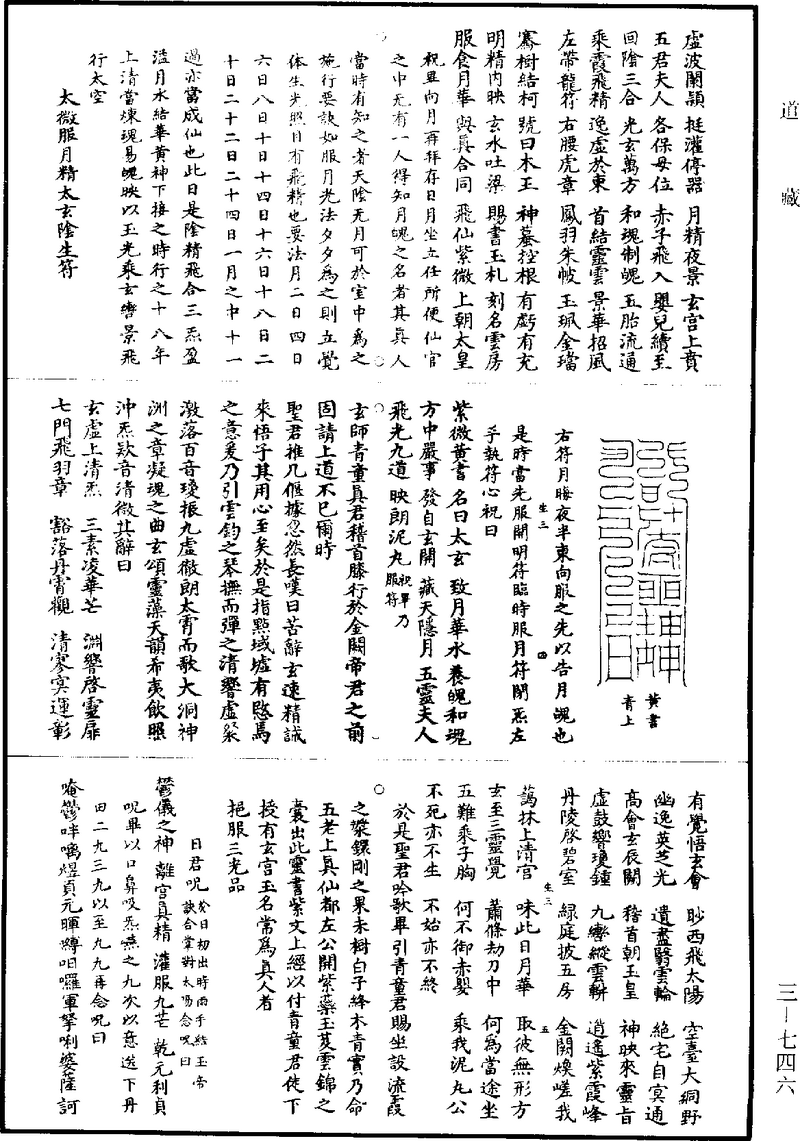 道藏
虛波闌頴　挺濯停器　月精夜景　玄宮上賁
五君夫人　各保母位　赤子飛入　嬰兒續至
回陰三合　光玄萬方　和魂制魄　五胎流通
乘霞飛精　逸虛於東　首結靈雲　景華招風
左帶龍符　右腰虎章　鳳羽朱帔　玉珮金璫
騫樹結柯　號曰木王　神蟇控根　有虧有充
明精內映　玄水吐梁　賜書玉札　刻名雲房
服食月華　與眞合同　飛仙紫微　上朝太皇
祝畢向月再拜存日月坐立任所便仙官
之中无有一人得知月魄之名者其眞人
當時有知之者天陰无月可於室中爲之
施行要訣如服月光法夕夕爲之則立覺
体生光照目有飛精也要法月二日四日
六日八日十日十四日十六日十八日二
十日二十二日二十四日一月之中十一
過亦當成仙也此日是陰精飛合三炁盈
溢月水結華黃神下接之時行之十八年
上清當煉魂易魄映以玉光乘玄轡景飛
行太空
太微服月精太玄陰生符
黃書
青上
右符月晦夜半東向服之先以告月魄也
是時當先服開明符臨時服月符閉炁左
手執符心祝曰
紫微黃書　名曰太玄　致月華水　養魄和魂
方中嚴事　發自玄關　藏天隱月　五靈夫人
飛光九道　映朗泥丸　祝畢乃服符
玄師青童眞君稽首膝行於金闕帝君之前
固請上道不已爾時
聖君推几偃據忽然長嘆曰苦辭玄遠精誠
來悟子其用心至矣於是指㸃域墟有愍焉
之意爰乃引雲鈞之琴撫而彈之清響虛粲
激落百音瓊振九虛徹朗太霄而歌大洞神
洲之章凝魂之曲玄頌靈藻天韻希夷飲照
沖炁歎音清微其辭曰
玄虛上清炁　三素凌華芒　淵響啓靈扉
七門飛羽章　豁落丹霄觀　清寥冥運彰
有覺悟玄會　眇西飛太陽　空臺大綱野
幽逸英芝光　遺盡翳雲輪　絕宅自冥通
高會玄辰闕　稽首朝玉皇　神映來靈旨
虛鼓響瓊鍾　九轡縱雲軿　逍遙紫霞峰
丹陵啓碧室　緑庭披五房　金闕煥嵯我
藹林上清宮　味此日月華　取彼無形方
玄至三靈覺　蕭條劫刀中　何爲當途坐
五難乘子胸　何不御赤嬰　乘我泥丸公
不死亦不生　不始亦不終
於是聖君吟歌畢引青童君賜坐設流霞
之漿鏁剛之果未樹白子絳木青實乃命
五老上眞仙都左公開紫蘂玉笈雲錦之
囊出此靈書紫文上經以付青童君使下
授有玄宮玉名當爲眞人者
挹服三光品
日君呪　癸日初出時兩手結玉帝訣合掌對太陽念呪曰
鬱儀之神　離宮眞精　灌服九芒　乾元利貞
呪畢以口鼻吸炁嚥之九次以意送下丹
田二九三九以至九九再念呪曰
唵鬱吽㗭煜貞元暉嚩呾囉軍拏唎婆薩訶
三—七四六